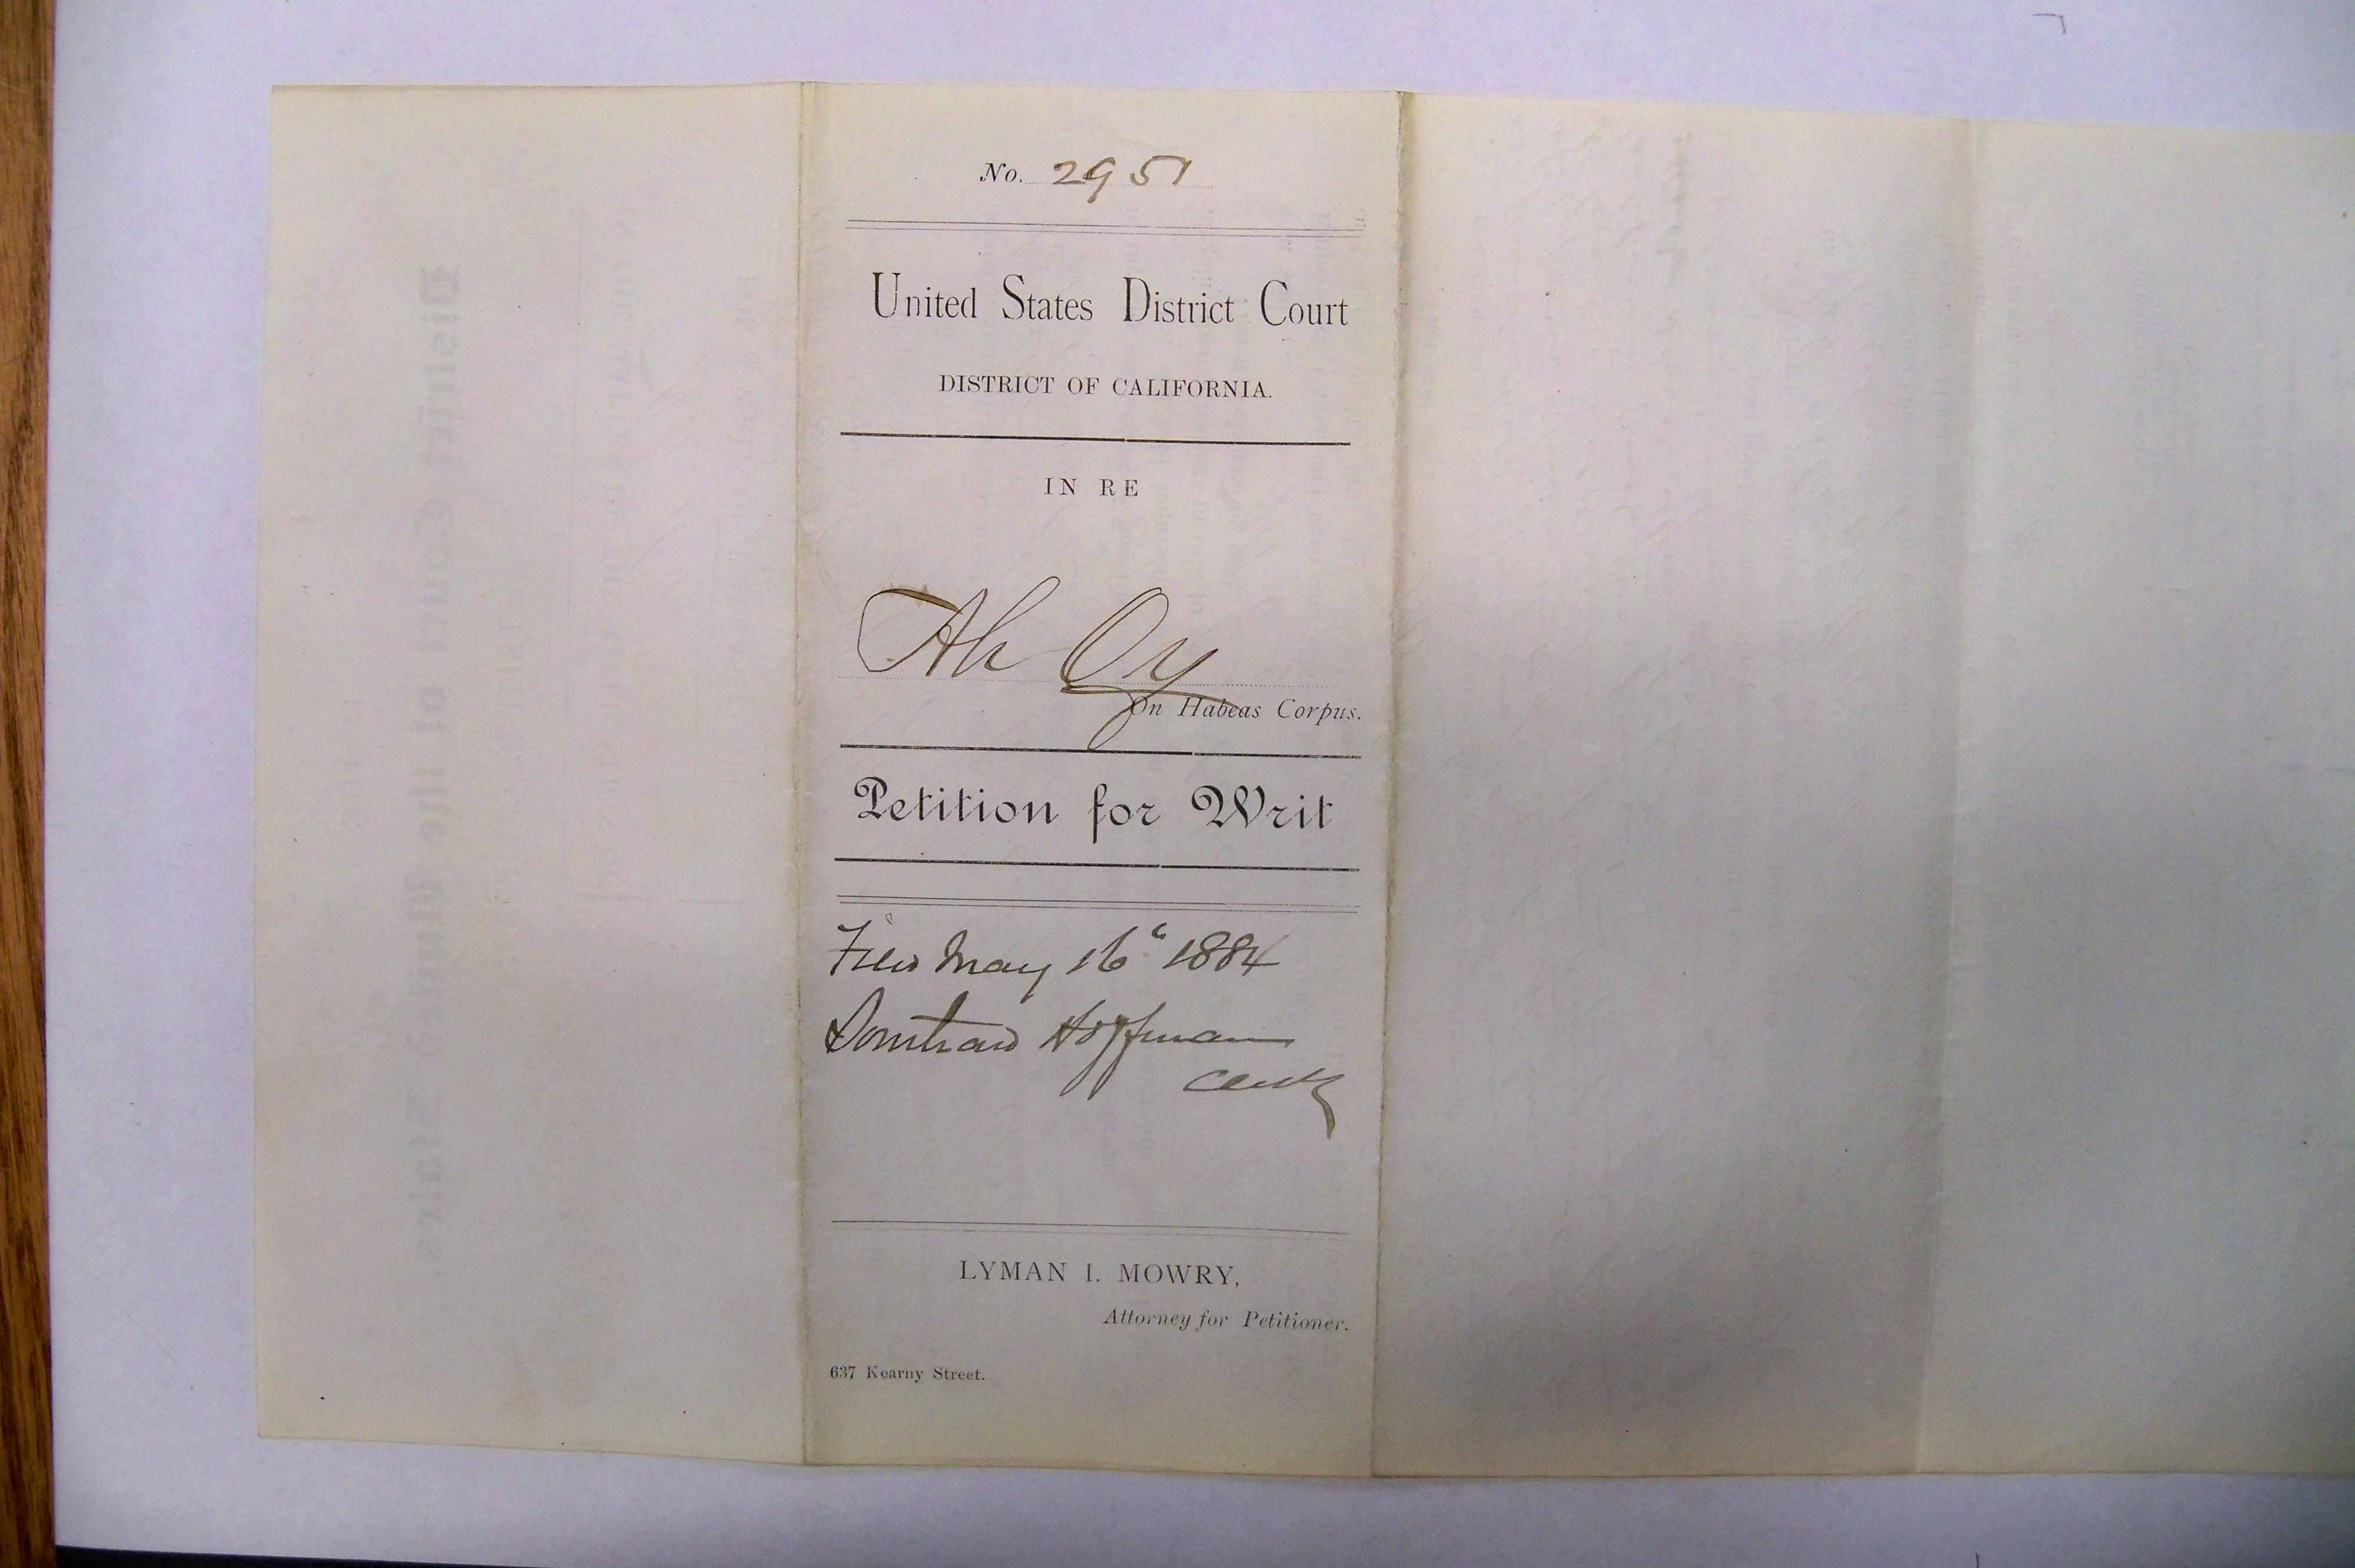 No. 2951
United States District Court
DISTRICT OF CALIFORNIA.
IN RE
Ah Oy
On Habeas Corpus.
Petition for Writ
Filed May 16" 1884
Southard Hoffman
Clerk
LYMAN I. MOWRY,
Attorney for Petitioner.
637 Kearny Street.